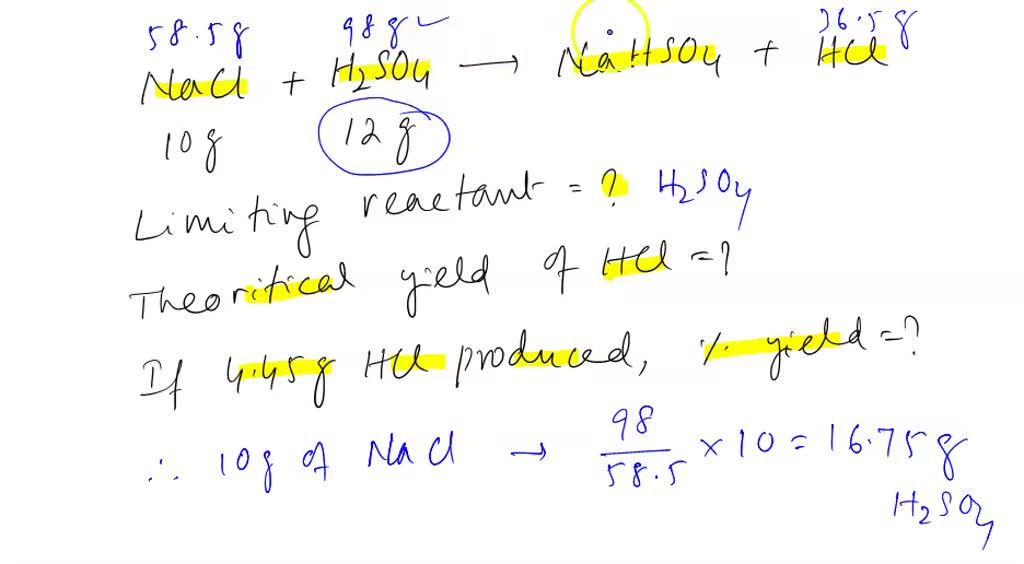 58.5g 98g 36.5g
NaCl + H2SO4 → NaHSO4 + HCl
10g 12g
Limiting reactant = ? H2SO4
Theoritical yield of HCl = ?
If 4.45g HCl produced, % yield = ?
∴ 10g of NaCl → 98/58.5 × 10 = 16.75g
H2SO4